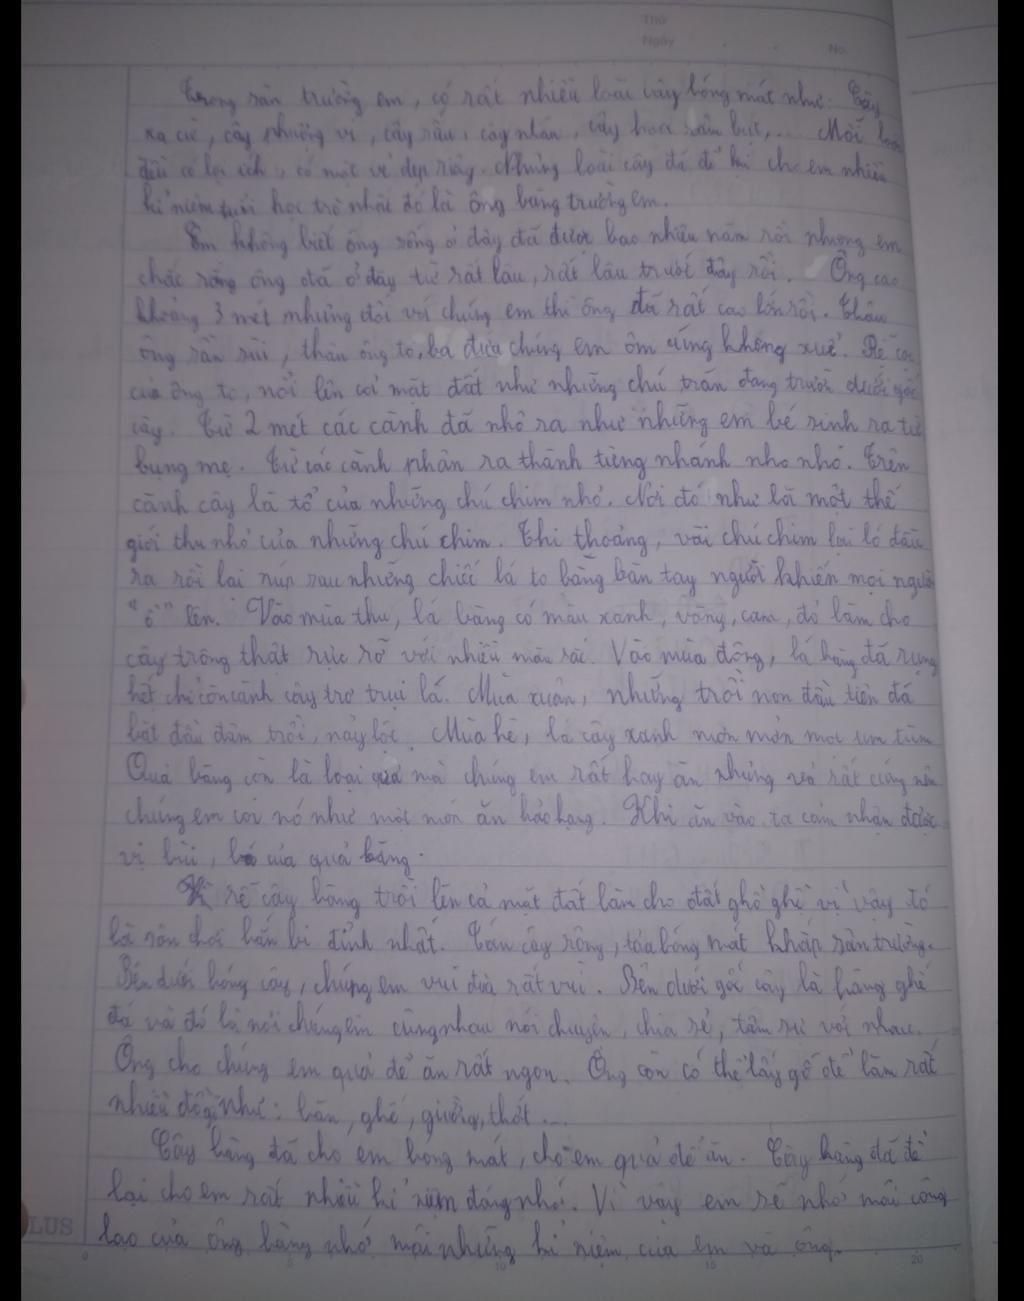 Thứ
Ngày
No.
Trong sân trường em, có rất nhiều loài cây bóng mát như: Cây
xà cừ, cây phượng vĩ, cây sấu, cây nhãn, cây hoa râm bụt,... Mỗi loài
đều có lợi ích, có một vẻ đẹp riêng. Những loài cây đã để lại cho em nhiều
kỉ niệm tuổi học trò nhất đó là ông bàng trường em.
Em không biết ông sống ở đây đã được bao nhiêu năm rồi nhưng em
chắc rằng ông đã ở đây từ rất lâu, rất lâu trước đây rồi. Ông cao
khoảng 3 mét nhưng đối với chúng em thì ông đã rất cao lớn rồi. Thân
ông sần sùi, thân ông to, ba đứa chúng em ôm cũng không xuể. Rễ cây
của ông to, nổi lên cả mặt đất như những chú trăn đang trườn dưới gốc
cây. Từ 2 mét các cành đã nhô ra như những em bé sinh ra từ
bụng mẹ. Từ các cành phân ra thành từng nhánh nho nhỏ. Trên
cành cây là tổ của những chú chim nhỏ. Nơi đó như là một thế
giới thu nhỏ của những chú chim. Thi thoảng, vài chú chim lại ló đầu
ra rồi lại núp sau những chiếc lá to bằng bàn tay người khiến mọi người
"ồ" lên. Vào mùa thu, lá bàng có màu xanh, vàng, cam, đỏ làm cho
cây trông thật rực rỡ với nhiều màu sắc. Vào mùa đông, lá bàng đã rụng
hết chỉ còn cành cây trơ trụi lá. Mùa xuân, những trồi non đầu tiên đã
bắt đầu đâm trồi, nảy lộc. Mùa hè, lá cây xanh mơn mởn mọc um tùm
Quả bàng còn là loại quả mà chúng em rất hay ăn nhưng vỏ rất cứng nên
chúng em coi nó như một món ăn hảo hạng. Khi ăn vào ta cảm nhận được
vị bùi, của quả bàng.
Vì rễ cây bàng trồi lên cả mặt đất làm cho đất ghồ ghề vì vậy đó
là sân chơi bắn bi đỉnh nhất. Tán cây rộng, tỏa bóng mát khắp sân trường.
Bên dưới bóng cây, chúng em vui đùa rất vui. Bên dưới gốc cây là hàng ghế
đá và đó là nơi chúng em cùng nhau nói chuyện, chia sẻ, tâm sự với nhau.
Ông cho chúng em quả để ăn rất ngon. Ông còn có thể lấy gỗ để làm rất
nhiều đồ gỗ như: bàn, ghế, giường, thớt ...
Cây bàng đã cho em bóng mát, cho em quả để ăn. Cây bàng đã để
lại cho em rất nhiều kỉ niệm đáng nhớ. Vì vậy em sẽ nhớ mãi công
lao của ông bàng nhớ mãi những kỉ niệm của em và ông.
LUS
0 5 10 15 20